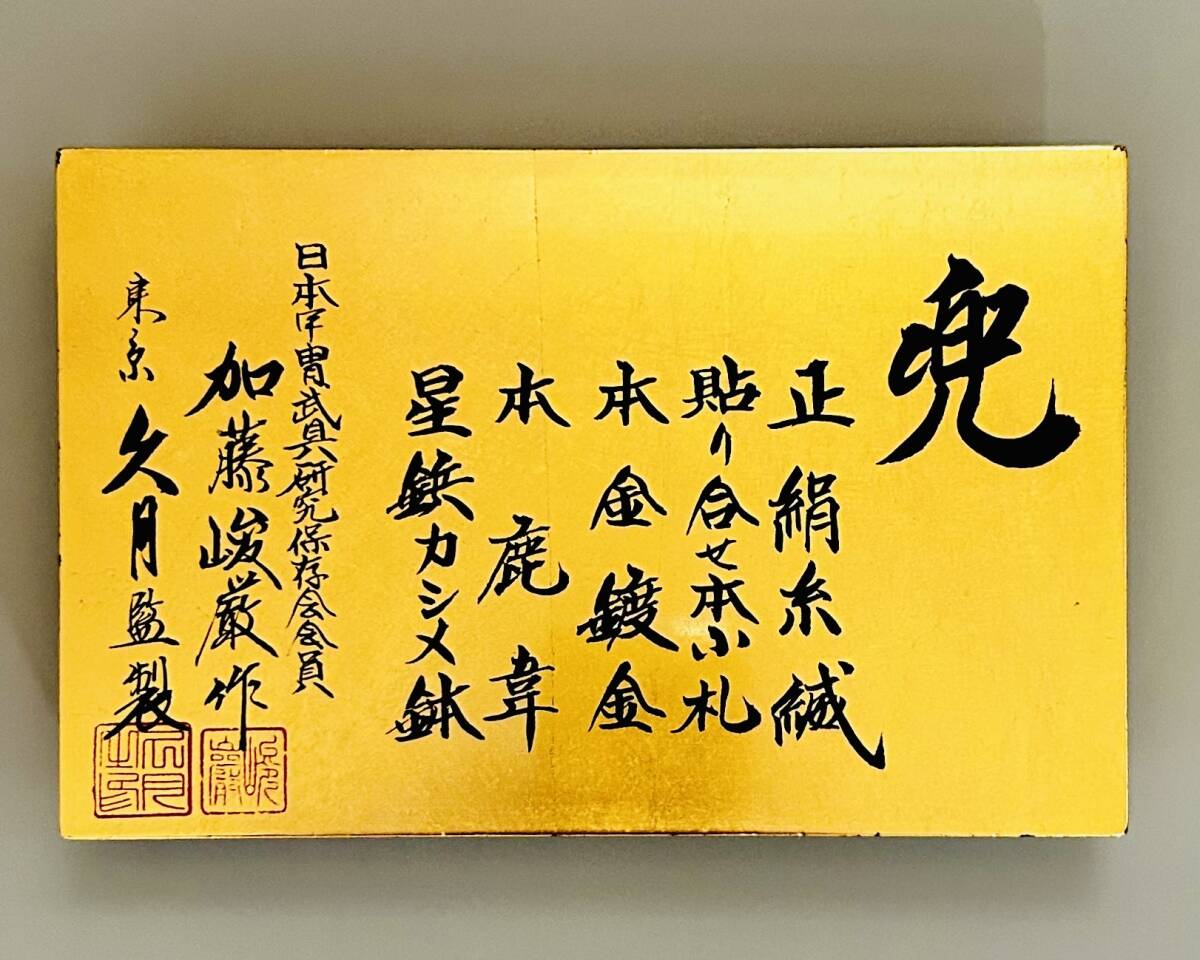 兜
正絹糸縅
貼り合せ本小札
本金鍍金
本鹿韋
星鋲カシメ鉢
日本甲冑武具研究保存会会員
加藤峻厳作
東京久月監製
峻厳